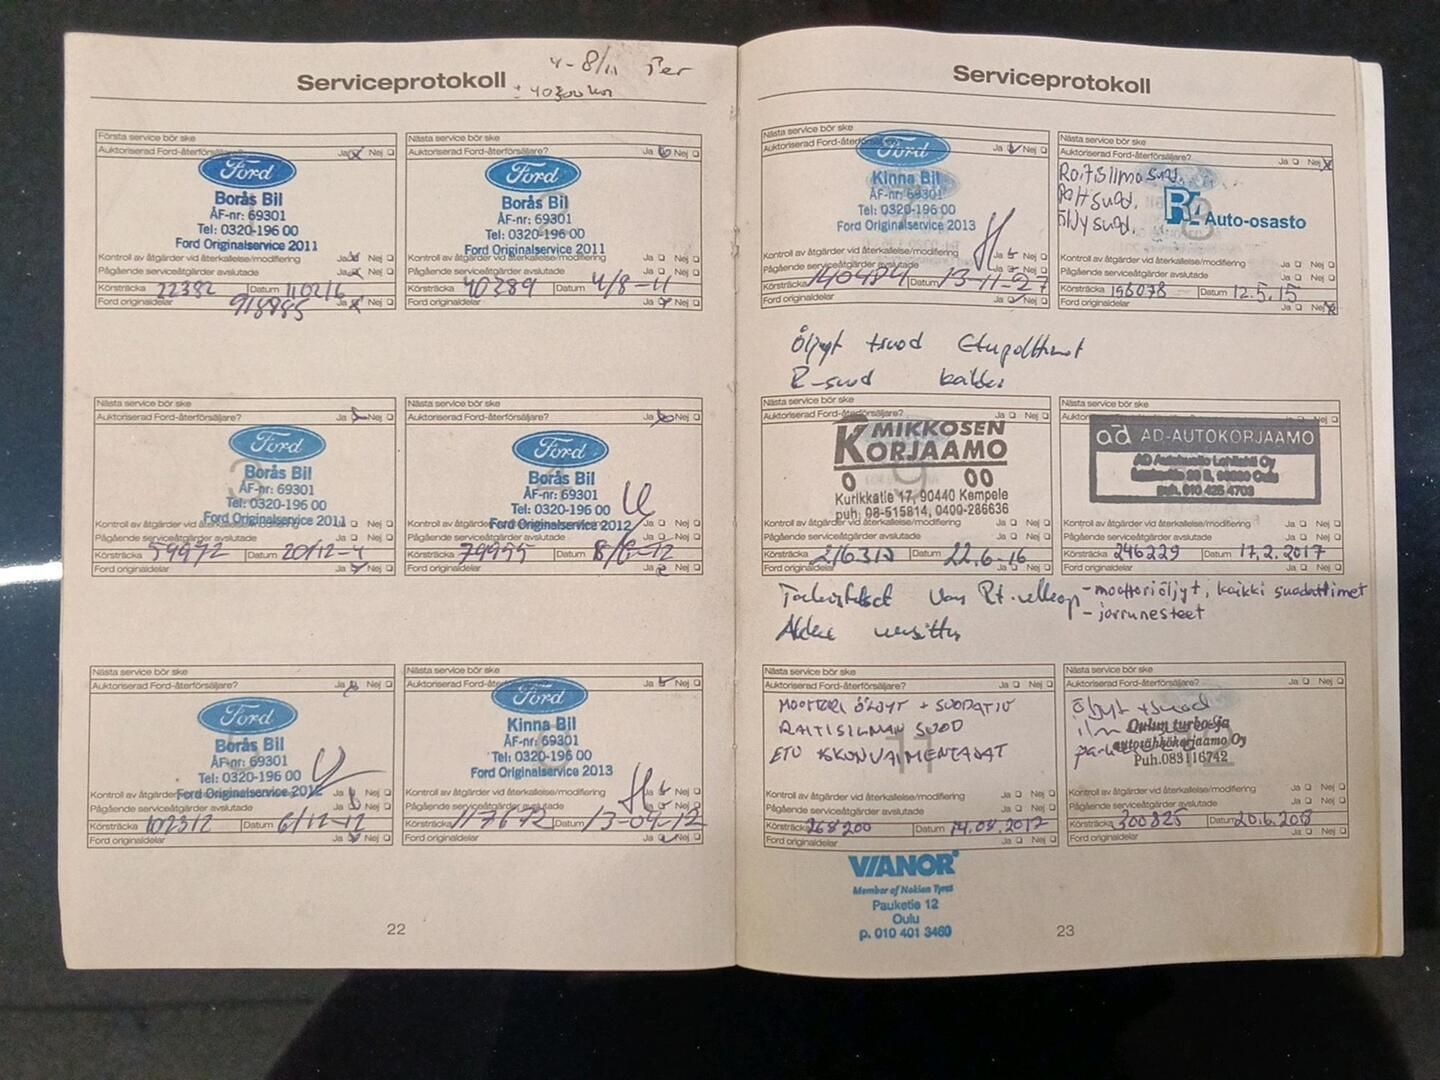 Serviceprotokoll
4-8/11 Per
± 40300 km
Första service bör ske
Auktoriserad Ford-återförsäljare? Ja Nej
Ford
Borås Bil
ÅF-nr: 69301
Tel: 0320-196 00
Ford Originalservice 2011
Kontroll av åtgärder vid återkallelse/modifiering Ja
Pågående serviceåtgärder avslutade Ja
Körsträcka 22382 Datum 110216
Ford originaldelar 918885 Ja Nej
Nästa service bör ske
Auktoriserad Ford-återförsäljare? Ja Nej
Ford
2
Borås Bil
ÅF-nr: 69301
Tel: 0320-196 00
Ford Originalservice 2011
Kontroll av åtgärder vid återkallelse/modifiering Ja Nej
Pågående serviceåtgärder avslutade Ja Nej
Körsträcka 40389 Datum 4/8-11
Ford originaldelar Ja Nej
Nästa service bör ske
Auktoriserad Ford-återförsäljare? Ja Nej
Ford
3
Borås Bil
ÅF-nr: 69301
Tel: 0320-196 00
Ford Originalservice 2011
Kontroll av åtgärder vid återkallelse/modifiering Ja Nej
Pågående serviceåtgärder avslutade Ja Nej
Körsträcka 59972 Datum 20/12-4
Ford originaldelar Ja Nej
Nästa service bör ske
Auktoriserad Ford-återförsäljare? Ja Nej
Ford
Borås Bil
ÅF-nr: 69301
Tel: 0320-196 00
Ford Originalservice 2012
Kontroll av åtgärder vid återkallelse/modifiering Ja Nej
Pågående serviceåtgärder avslutade Ja Nej
Körsträcka 79955 Datum 8/6-12
Ford originaldelar Ja Nej
Nästa service bör ske
Auktoriserad Ford-återförsäljare? Ja Nej
Ford
Borås Bil
ÅF-nr: 69301
Tel: 0320-196 00
Ford Originalservice 2012
Kontroll av åtgärder vid återkallelse/modifiering Ja Nej
Pågående serviceåtgärder avslutade Ja Nej
Körsträcka 102312 Datum 6/12-12
Ford originaldelar Ja Nej
Nästa service bör ske
Auktoriserad Ford-återförsäljare? Ja Nej
Ford
Kinna Bil
ÅF-nr: 69301
Tel: 0320-196 00
Ford Originalservice 2013
Kontroll av åtgärder vid återkallelse/modifiering Ja Nej
Pågående serviceåtgärder avslutade Ja Nej
Körsträcka 117672 Datum 13-04-12
Ford originaldelar Ja Nej
22
Serviceprotokoll
Nästa service bör ske
Auktoriserad Ford-återförsäljare? Ja Nej
Ford
Kinna Bil
ÅF-nr: 69301
Tel: 0320-196 00
Ford Originalservice 2013
Kontroll av åtgärder vid återkallelse/modifiering Ja Nej
Pågående serviceåtgärder avslutade Ja Nej
Körsträcka 140484 Datum 13-11-27
Ford originaldelar Ja Nej
Nästa service bör ske
Auktoriserad Ford-återförsäljare? Ja Nej
Raitisilma suod.
Öljy suod.
8
Auto-osasto
Kontroll av åtgärder vid återkallelse/modifiering Ja Nej
Pågående serviceåtgärder avslutade Ja Nej
Körsträcka 196078 Datum 12.5.15
Ford originaldelar Ja Nej
Öljyt +suod Etupolttimot
R-suod kaikki
Nästa service bör ske
Auktoriserad Ford-återförsäljare? Ja Nej
MIKKOSEN
KORJAAMO
9
Kurikkatie 17, 90440 Kempele
puh. 08-515814, 0400-286636
Kontroll av åtgärder vid återkallelse/modifiering Ja Nej
Pågående serviceåtgärder avslutade Ja Nej
Körsträcka 216312 Datum 22.6-16
Ford originaldelar Ja Nej
Nästa service bör ske
ad AD-AUTOKORJAAMO
puh. 010 425 4703
Kontroll av åtgärder vid återkallelse/modifiering Ja Nej
Pågående serviceåtgärder avslutade Ja Nej
Körsträcka 246229 Datum 17.2.2017
Ford originaldelar Ja Nej
- moottoriöljyt, kaikki suodattimet
- jarrunesteet
Nästa service bör ske
Auktoriserad Ford-återförsäljare? Ja Nej
MOOTTORI ÖLJYT + SUODATIN
RAITISILMAN SUOD
ETU ISKUNVAIMENTAJAT
11
Kontroll av åtgärder vid återkallelse/modifiering Ja Nej
Pågående serviceåtgärder avslutade Ja Nej
Körsträcka 268200 Datum 14.08.2017
Ford originaldelar Ja Nej
VIANOR
Member of Nokian Tyres
Pauketie 12
Oulu
p. 010 401 3460
Nästa service bör ske
Auktoriserad Ford-återförsäljare? Ja Nej
Öljyt +suod
Oulun turbo-ja
autosähkökorjaamo Oy
Puh.083116742
Kontroll av åtgärder vid återkallelse/modifiering Ja Nej
Pågående serviceåtgärder avslutade Ja Nej
Körsträcka 300825 Datum 20.6.2018
Ford originaldelar Ja Nej
23